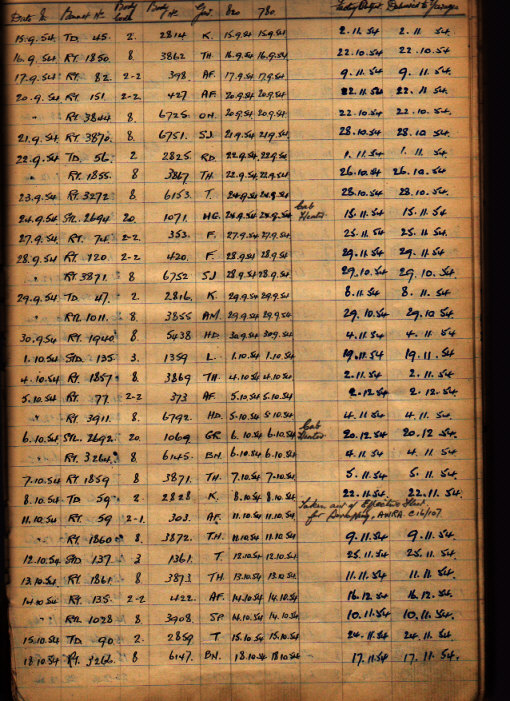 Date In Bonnet No Body Code Body No Gar. 820 780 Delivered to Garages
15.9.54 TD. 45. 2. 2814 K. 15.9.54 15.9.54 2. 11. 54 2. 11. 54
16.9.54 RT. 1850 8 3862 TH. 16.9.54 16.9.54 22.10.54 22.10.54
17.9.54 RT. 82. 2-2 398 AF. 17.9.54 17.9.54 9.11.54 9.11.54.
20.9.54 RT. 151. 2-2. 427 AF. 20.9.54 20.9.54 22.11.54 22.11.54
" RT 3844 8. 6725. ON. 20.9.54 20.9.54 22.10.54 22.10.54.
21.9.54 RT. 3870. 8. 6751. SJ. 21.9.54 21.9.54 28.10.54 28.10.54
22.9.54 TD. 56. 2 2825 RD. 22.9.54 22.9.54 1.11.54 1.11.54
" RT. 1855. 8 3867 TH. 22.9.54 22.9.54 26.10.54 26.10.54
23.9.54 RT. 3272 8 6153. T. 24.9.54 24.9.54 28.10.54 28.10.54
24.9.54 SRL. 2694 20 1071 HG. 24.9.54 24.9.54 Cab Heater 15.11.54 15.11.54
27.9.54 RT. 74. 2-2. 353. F. 27.9.54 27.9.54 25.11.54 25.11.54
28.9.54 RT. 120. 2-2 420. F. 28.9.54 28.9.54 29.11.54 29.11.54
" RT. 3871. 8 6752 SJ 28.9.54 28.9.54 29.10.54 29.10.54
29.9.54 TD. 47. 2 2816. K. 29.9.54 29.9.54 8.11.54 8.11.54
" RTL 1011. 8 3855 AM. 29.9.54 29.9.54 29.10.54 29.10.54
30.9.54 RT. 1940 8 5438 HD. 30.9.54 30.9.54 4.11.54 4.11.54
1.10.54 STD. 135. 3. 1359 L. 1.10.54 1.10.54 19.11.54 19.11.54
4.10.54 RT. 1857 8 3869 TH. 4.10.54 4.10.54 2.11.54 2.11.54
5.10.54 RT. 77. 2-2 373 AF. 5.10.54 5.10.54 2.12.54 2.12.54
" RT. 3911. 8 6792. HD. 5.10.54 5.10.54 4.11.54 4.11.54.
6.10.54 SRL. 2692. 20. 1069 GR. 6.10.54 6.10.54 Cab Heater 20.12.54 20.12.54
" RT. 3264. 8 6145. BN. 6.10.54 6.10.54 4.11.54 4.11.54
7.10.54 RT. 1859 8 3871. TH. 7.10.54 7.10.54 5.11.54 5.11.54
8.10.54 TD. 59 2. 2828 K. 8.10.54 8.10.54 22.11.54 22.11.54
11.10.54 RT. 59 2-1. 303. AF. 11.10.54 11.10.54 Taken out of Effective Stock for AWRA C16/107
" RT. 1860 8. 3872. TH. 11.10.54 11.10.54 9.11.54 9.11.54
12.10.54 STD 137. 3 1361. T. 12.10.54 12.10.54 25.11.54 25.11.54
13.10.54 RT. 1861 8 3873 TH. 13.10.54 13.10.54 11.11.54 11.11.54
14.10.54 RT. 135. 2-2 422. AF. 14.10.54 14.10.54 16.12.54 16.12.54
" RTL 1028 8 3908 SP. 14.10.54 14.10.54 10.11.54 10.11.54.
15.10.54 TD. 90. 2. 2859 T 15.10.54 15.10.54 24.11.54 24.11.54
18.10.54 RT. 3266. 8 6147. BN. 18.10.54 18.10.54 17.11.54 17.11.54.